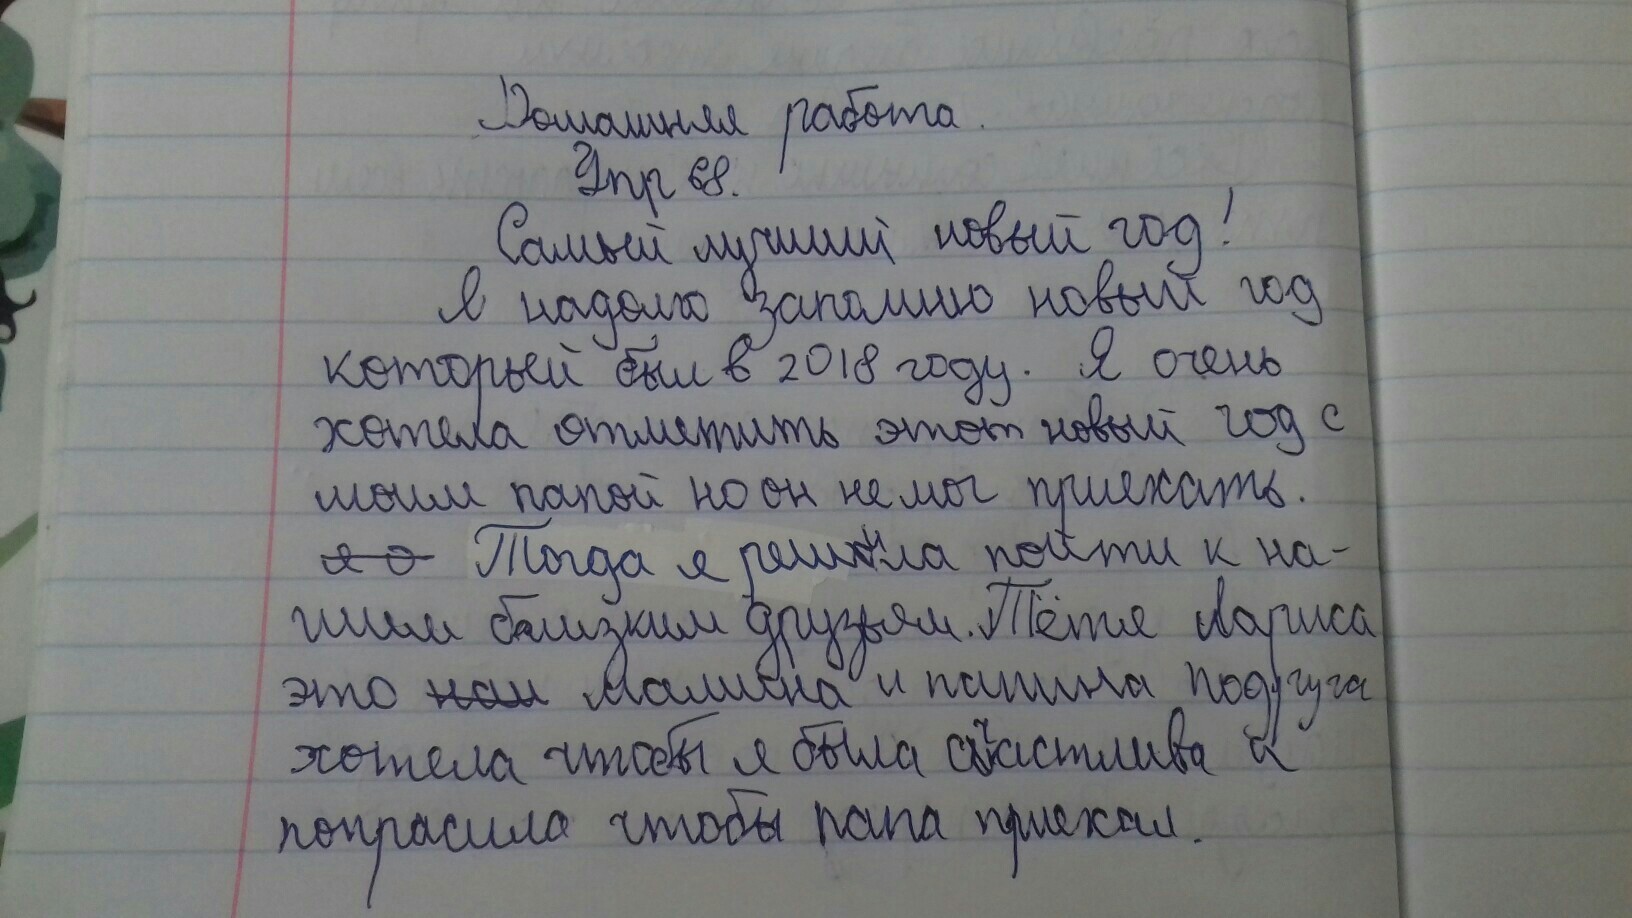 Домашняя работа.
Упр 68.
Самый лучший новый год!
Я надолго запомню новый год
который был в 2018 году. Я очень
хотела отметить этот новый год с
моим папой но он не мог приехать.
я о Тогда я решила пойти к на-
шим близким друзьям. Тётя Лариса
это наш Мамина и папина подгуга
хотела чтобы я была счастлива и
попрасила чтобы папа приехал.